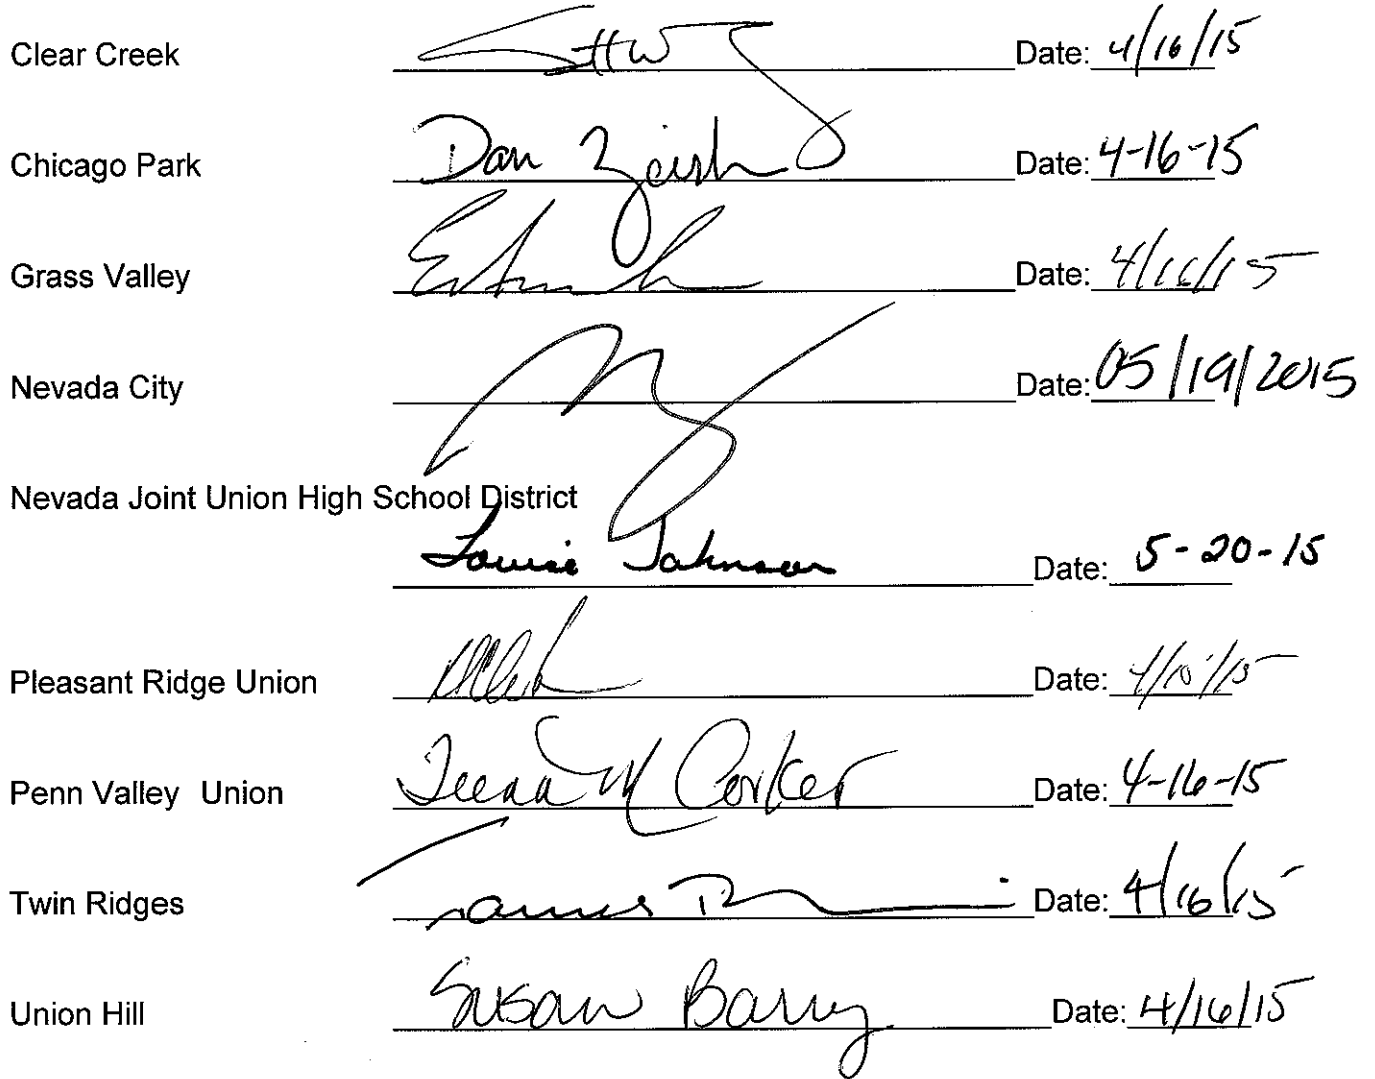 Clear Creek Date: 4/16/15
Chicago Park Dan Zeisler Date: 4-16-15
Grass Valley Date: 4/16/15
Nevada City Date: 05/19/2015
Nevada Joint Union High School District
Louise Johnson Date: 5-20-15
Pleasant Ridge Union Date:
Penn Valley Union Teena M Corker Date: 4-16-15
Twin Ridges James Date: 4/16/15
Union Hill Susan Barry Date: 4/16/15